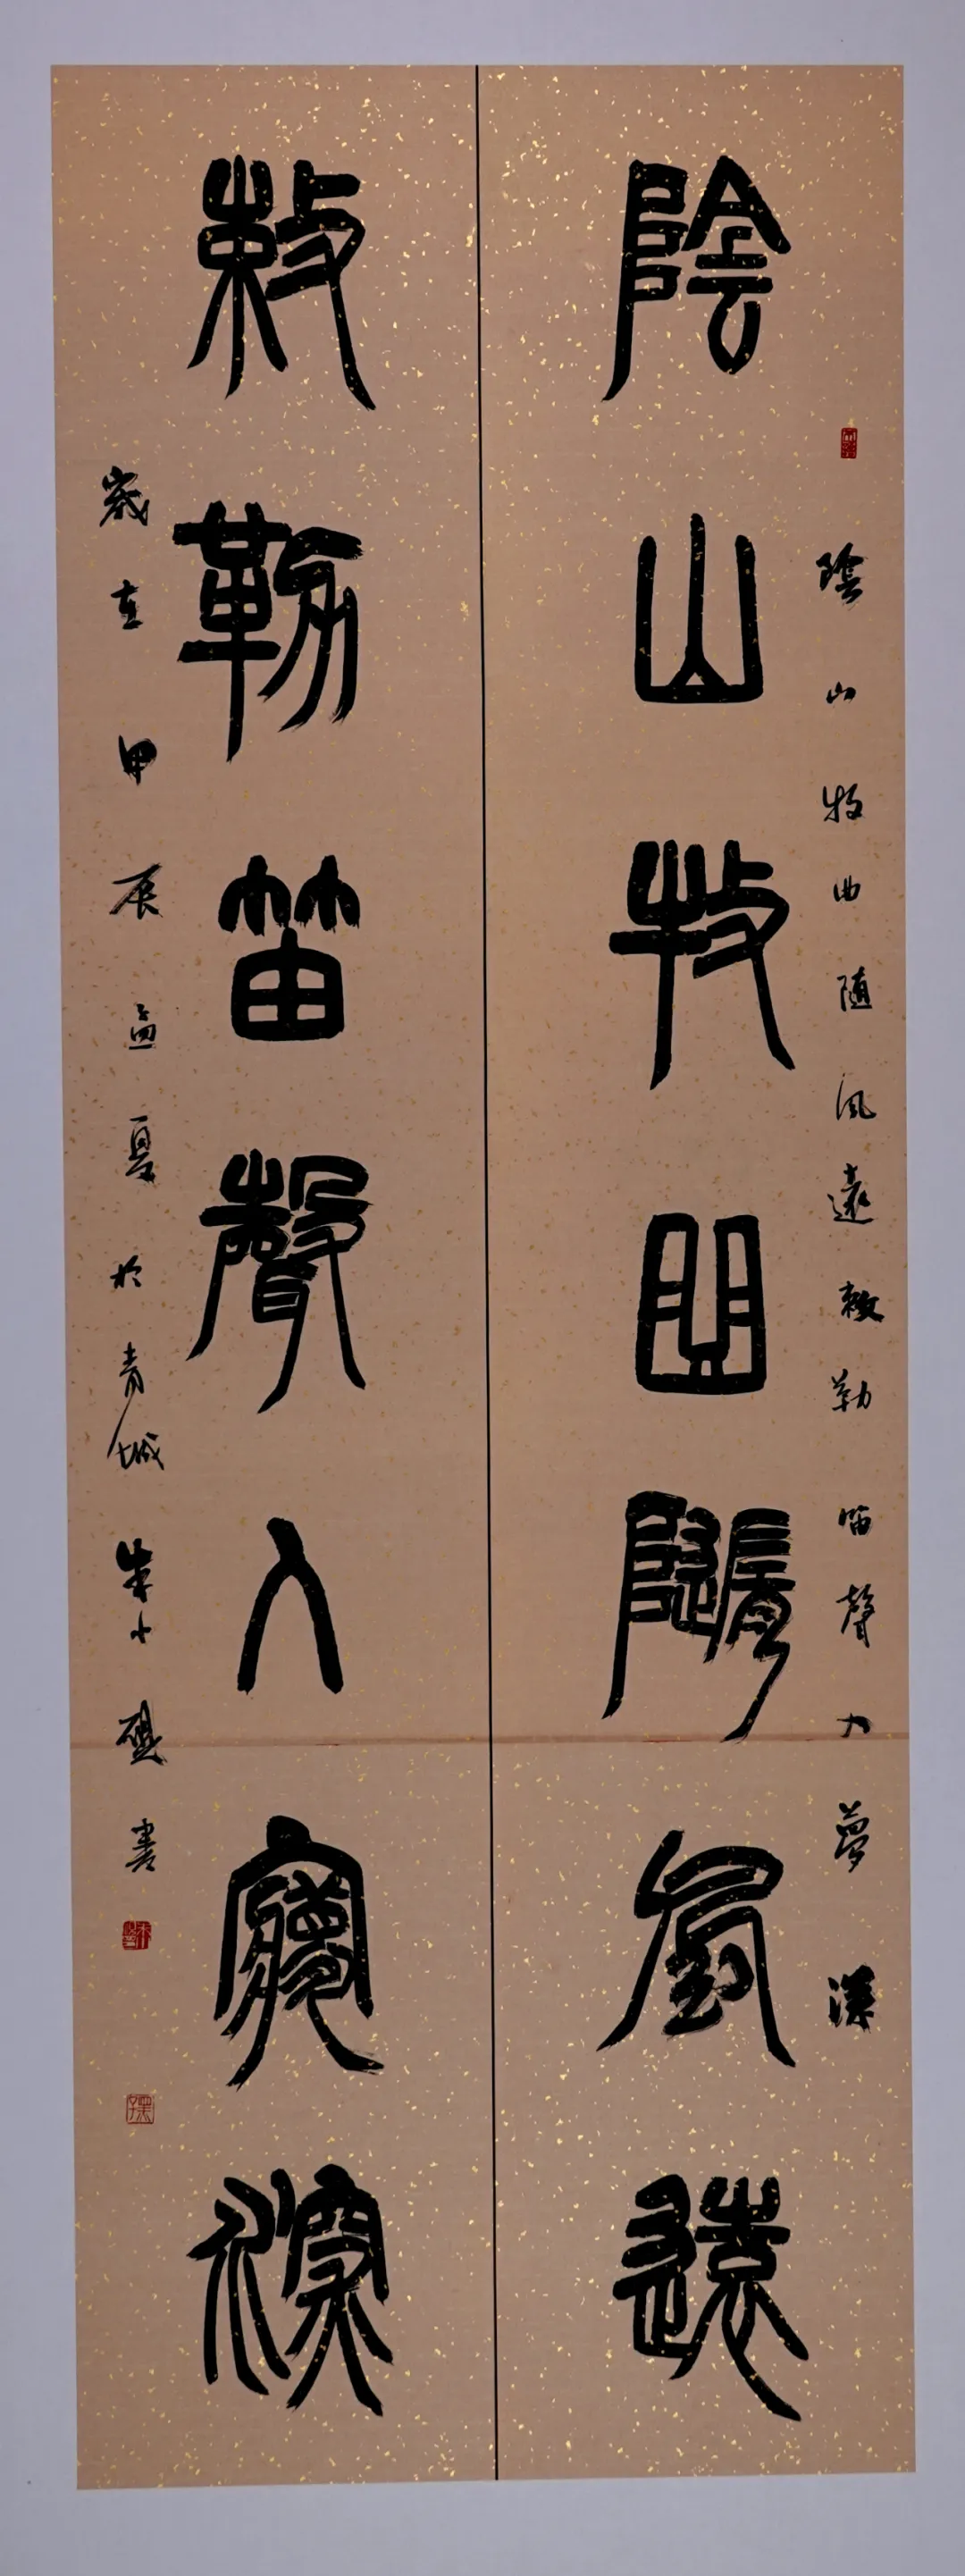 陰山牧曲隨風遠
敕勒笛聲入夢深
陰山牧曲随風遠敕勒笛聲入夢深
歲在甲辰孟夏於青城朱小
書